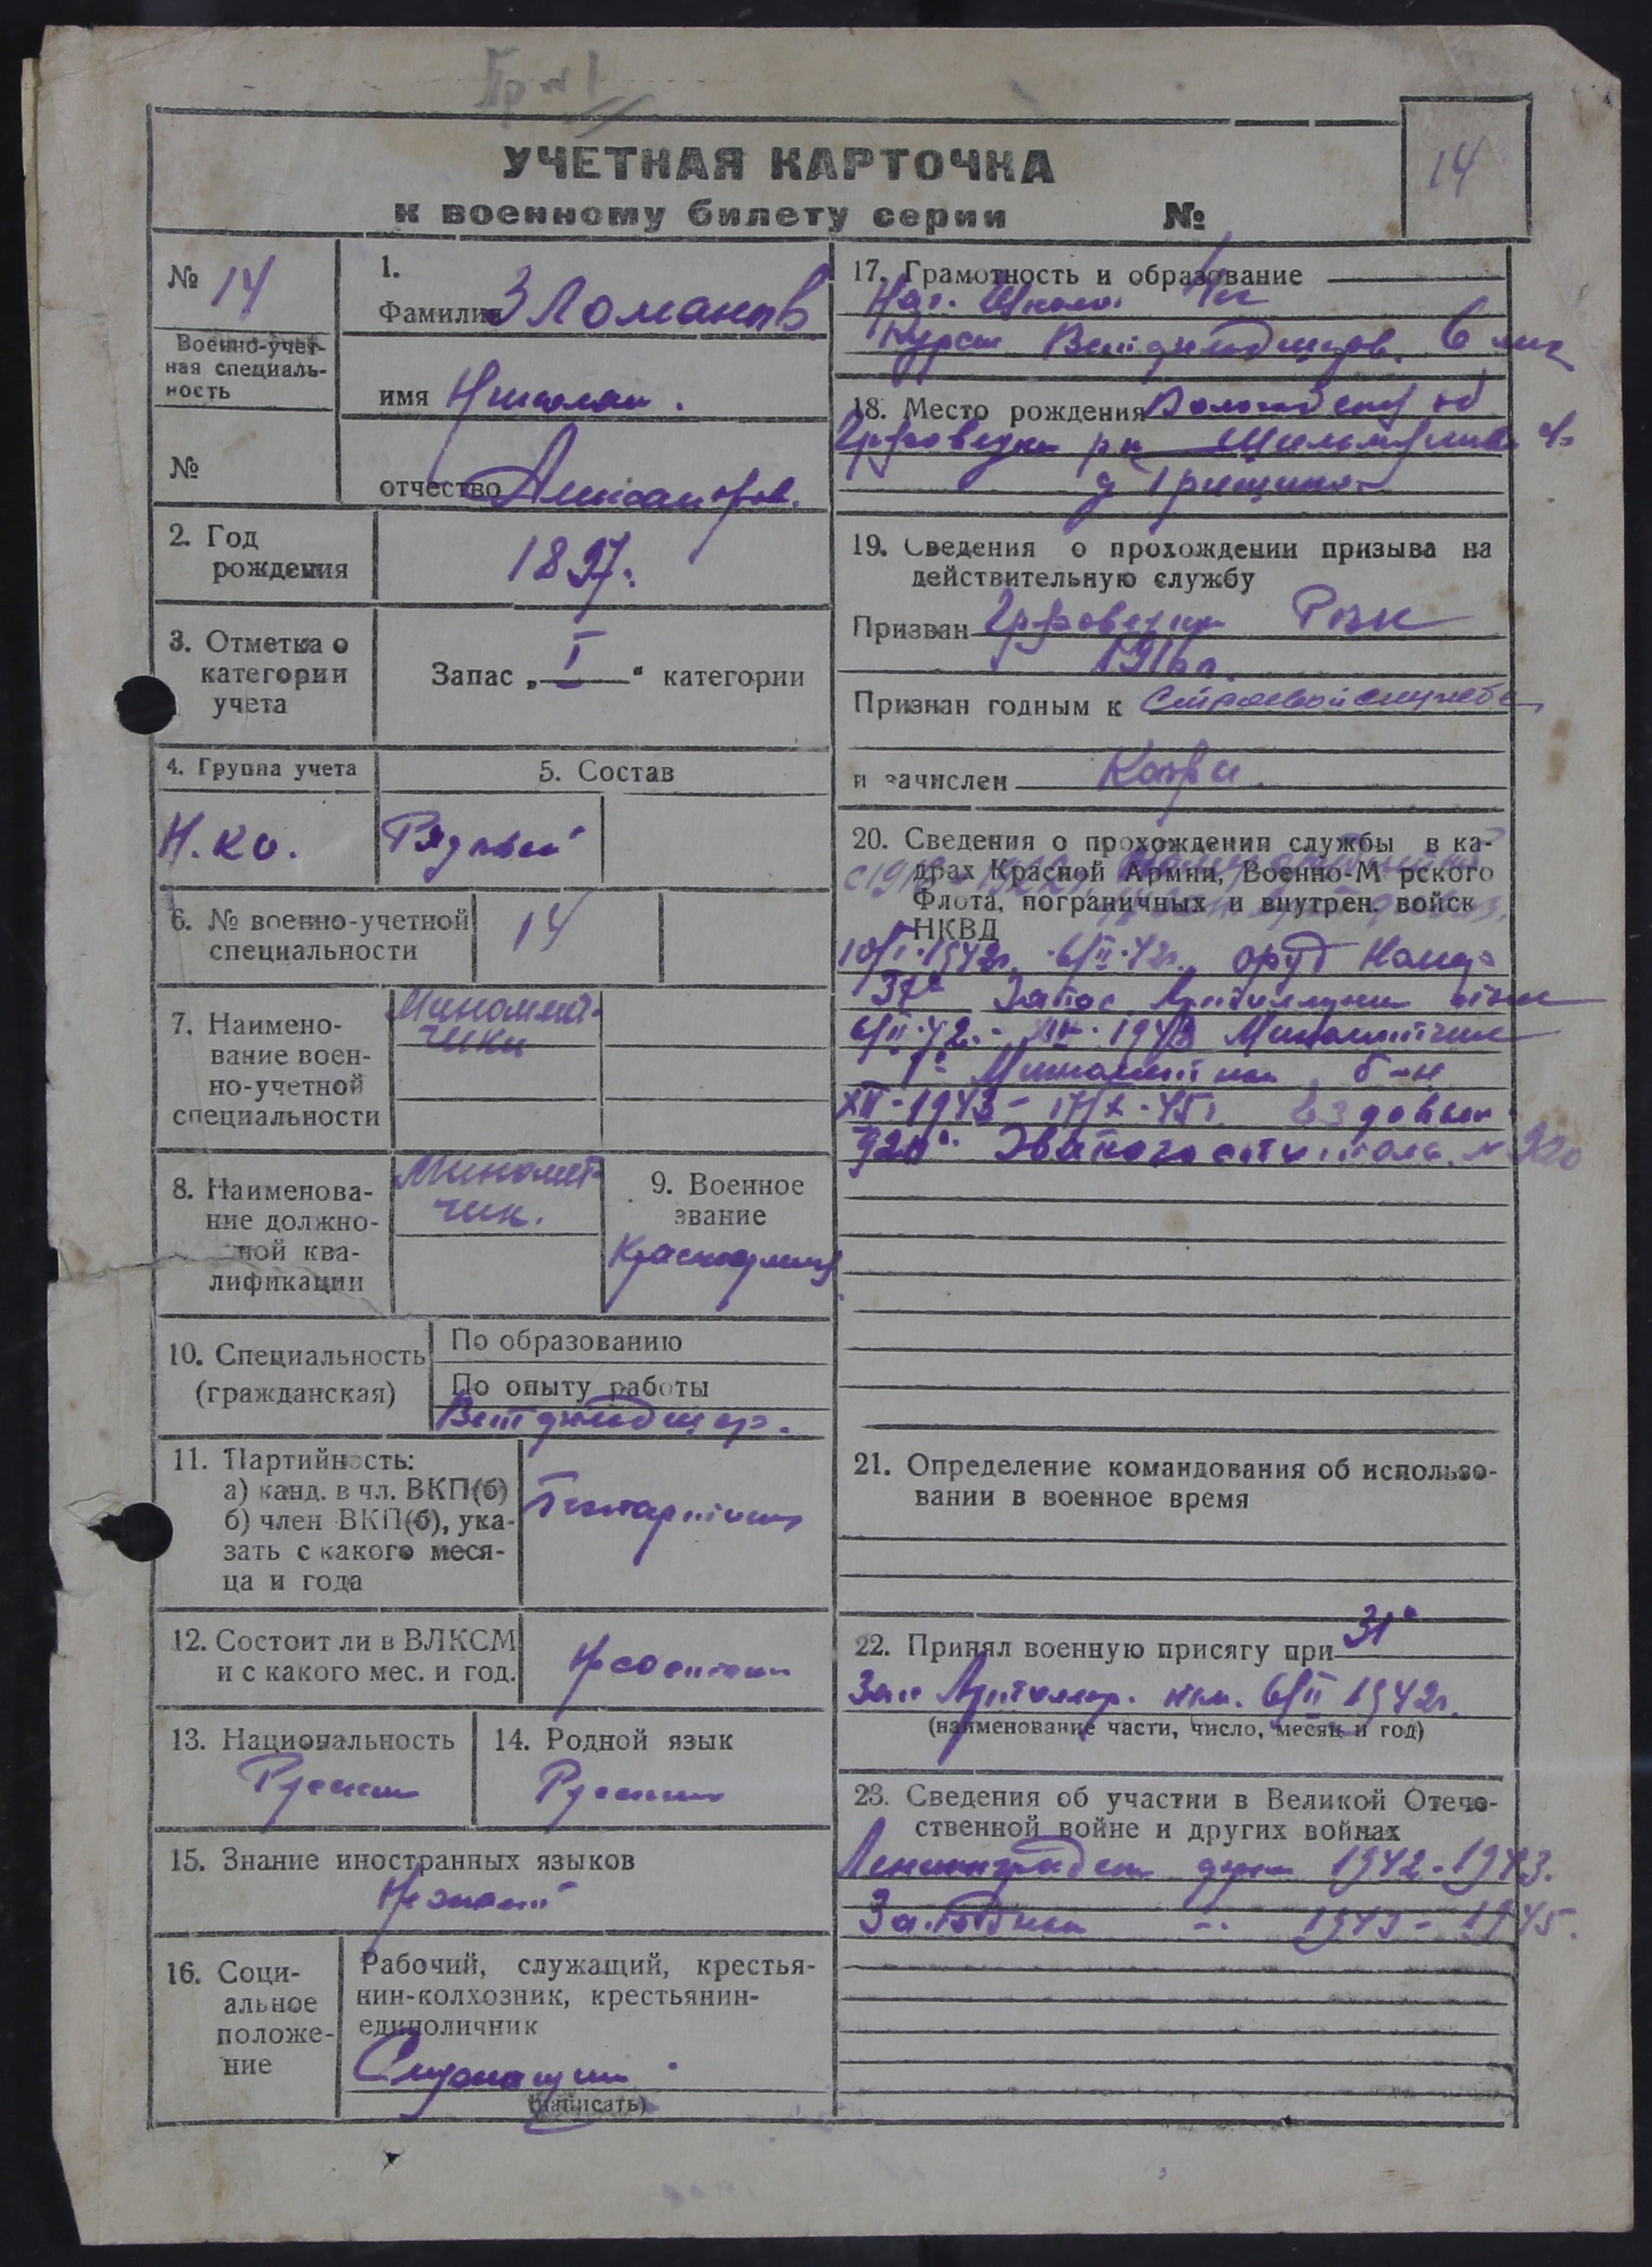 Пр №1
УЧЕТНАЯ КАРТОЧКА
к военному билету серии №
14
№ 14
Военно-учет-
ная специаль-
ность
№
1.
Фамилия Зломанов
имя Николай.
отчество Александров.
2. Год
рождения
1897.
3. Отметка о
категории
учета
Запас „I“ категории
4. Группа учета
Н.ко.
5. Состав
Рядовой
6. № военно-учетной
специальности
14
7. Наимено-
вание воен-
но-учетной
специальности
Миномет-
чики
8. Наименова-
ние должно-
ной ква-
лификации
Миномет-
чик.
9. Военное
звание
Красноармеец
10. Специальность
(гражданская)
По образованию
По опыту работы
Ветфельдшер.
11. Партийность:
а) канд. в чл. ВКП(б)
б) член ВКП(б), ука-
зать с какого меся-
ца и года
12. Состоит ли в ВЛКСМ
и с какого мес. и год.
Не состоит
13. Национальность
Русский
14. Родной язык
Русский
15. Знание иностранных языков
Не знает
16. Соци-
альное
положе-
ние
Рабочий, служащий, крестья-
нин-колхозник, крестьянин-
единоличник
Служащий
(написать)
17. Грамотность и образование
Нач. школа.
Курсы Ветфельдшеров. 6 мес
18. Место рождения Вологодской об
р-н
д
19. Сведения о прохождении призыва на
действительную службу
Призван РВК
1916г.
Признан годным к Строевой службе
и зачислен
20. Сведения о прохождении службы в ка-
драх Красной Армии, Военно-М рского
Флота, пограничных и внутрен. войск
НКВД
10/I·1942г. 6/II·42г.
Запас Артиллерии
6/II·42 1943 Минометчик
1й Минометный б-н
XII-1943 - 17/X-45г. ездовым
920й Эвакогоспиталь № 920
21. Определение командования об использо-
вании в военное время
22. Принял военную присягу при
Зап Артиллер. 6/II 1942г.
(наименование части, число, месяц и год)
23. Сведения об участии в Великой Отече-
ственной войне и других войнах
Ленинградский фронт 1942-1943.
Западный -"- 1943-1945.